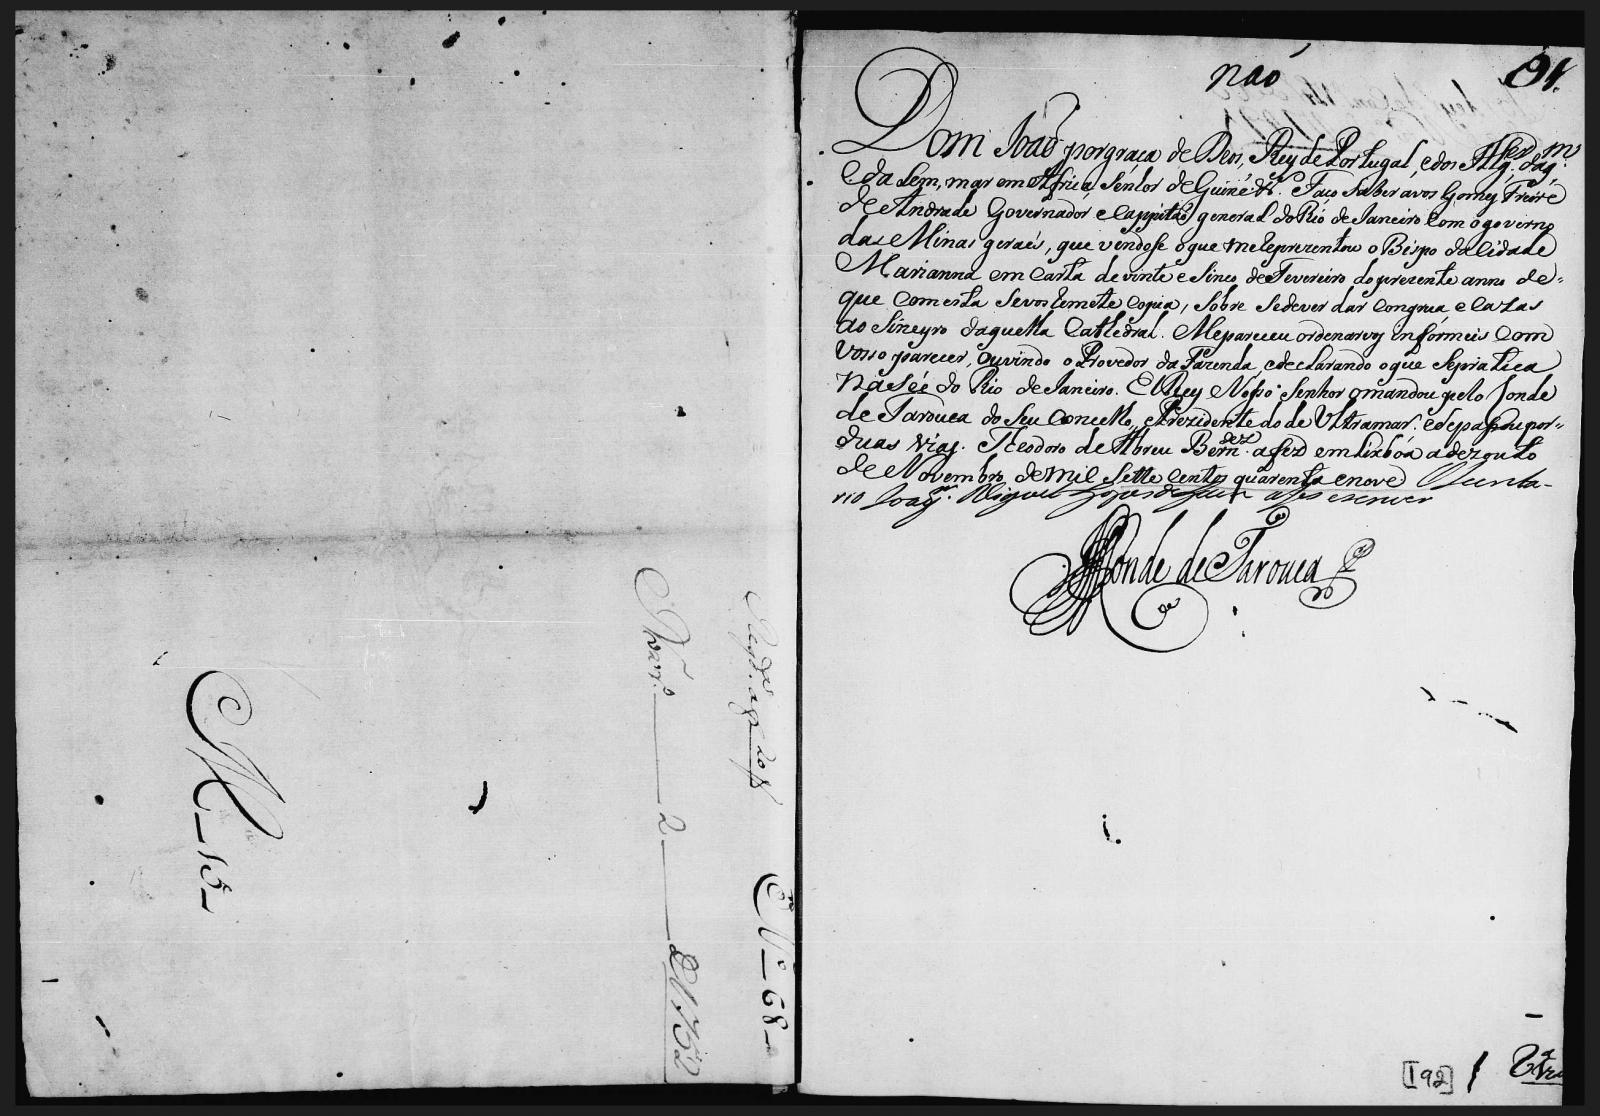 M_15_
N.º 68_
2
naó
91.
Dom Joaõ por graça de Deos, Rey de Portugal, e dos Alg.es daq.m
e da lem, mar em Africa Senhor de Guiné &c. Faço saber avos Gomes Freire
de Andrade Governador e Cappitaõ general do Rio de Janeiro com o governo
das Minas geraes, que vendose o que me Reprezentou o Bispo da Cidade
Marianna em carta de vinte e sinco de Fevereiro do prezente anno de-
que com esta se vos Remete copia, sobre se dever dar congrua e cazas
ao Sineyro daquella Cathedral. Me pareceu ordenarvos informeis com
vosso parecer, ouvindo o Provedor da Fazenda, e declarando o que se pratica
na Sée do Rio de Janeiro. El Rey Nosso Senhor o mandou pelo Conde
de Tarouca do Seu Concelho, e Prezidente do de Ultramar. e se passou por-
duas vias. Theodoro de Abreu Bern.des a fez em Lixboa a dezouto
de Novembro, de mil Sette centos quarenta e nove O Secreta-
rio Joaq.m Miguel Lopes de a fes escrever
Conde de Tarouca
[192]